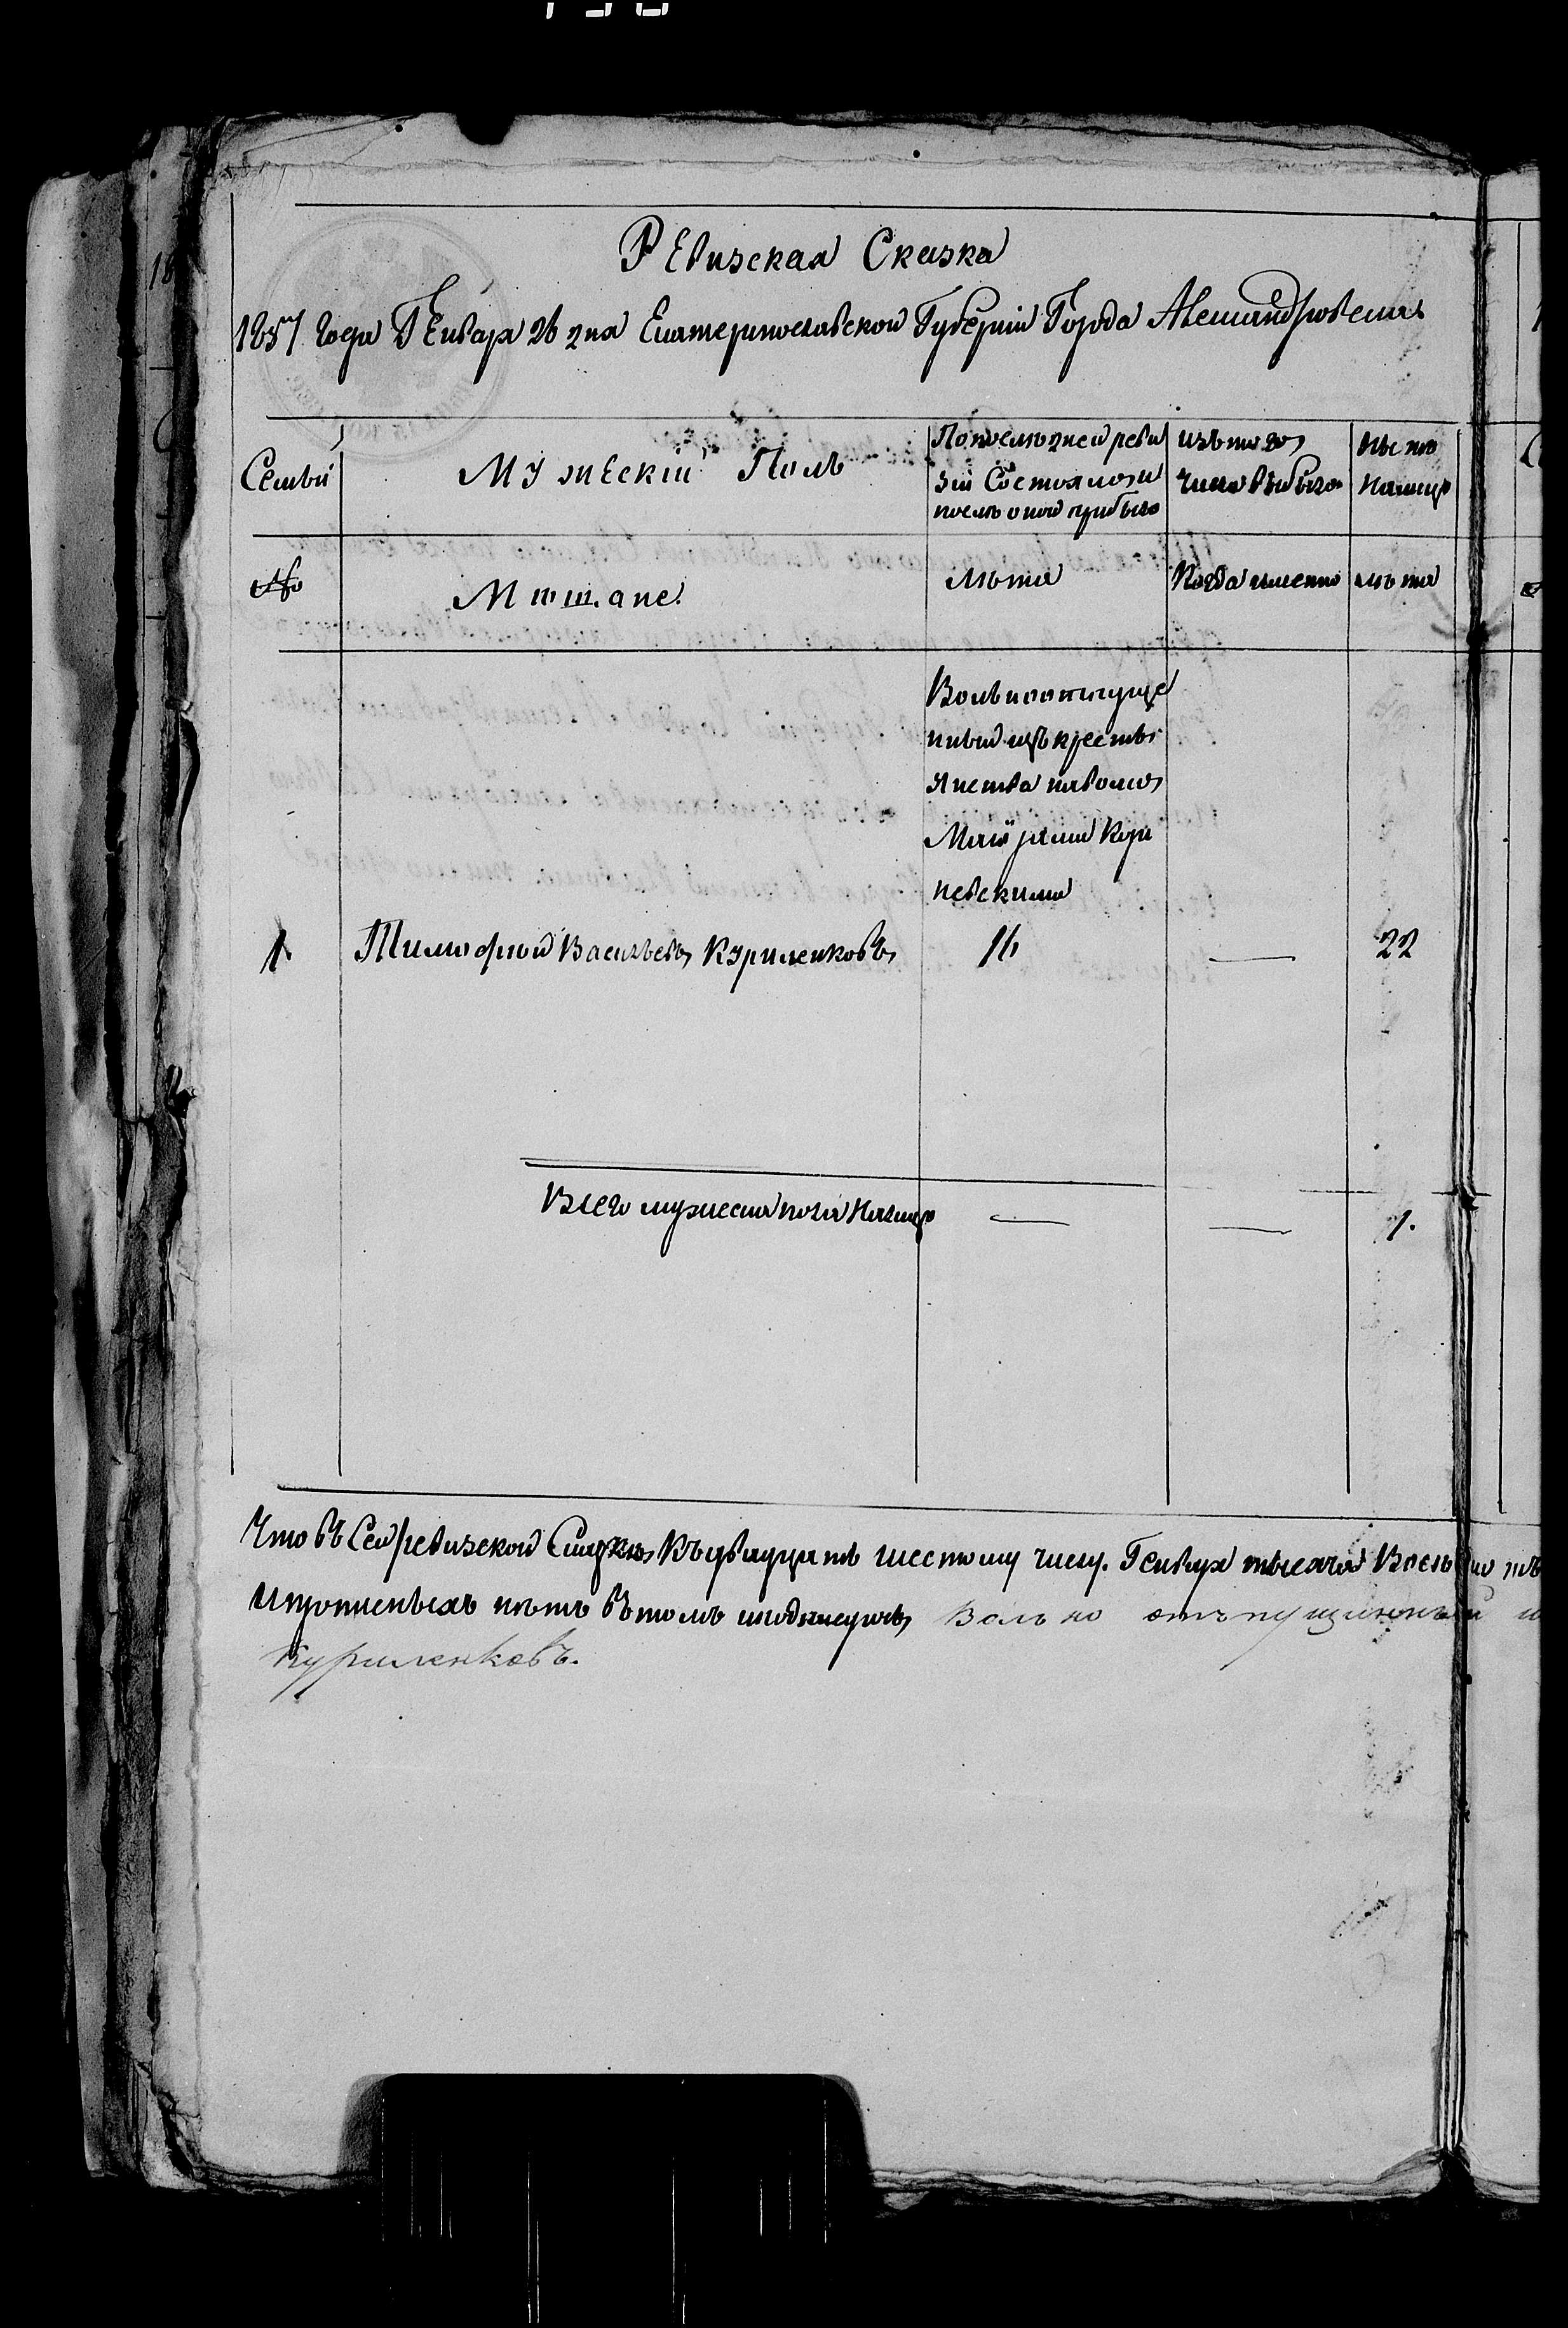 Ревизская Сказка
1857 года Генваря 26 дня Екатеринославской Губерніи Города Александровска
Семьи
Мужескій Полъ
По последней реви
зіи Состояло и
после оной прибыло
изъ того
числа выбыло
ныне
налицо
№
Мещане.
Лета
Когда именно
лета
Вольноотпуще
ный изъ кресть
янства
Маіорами Кор
невскими
1.
Тимофей Васильевъ Куриленковъ
16
—
22
Всего мужеска пола Налицо
—
—
1.
Что въ Сей ревизской Сказке Къ двадцать шестому числу. Генваря тысяча Восемь
И прописныхъ нетъ въ томъ Вольно отъпущинный
Куриленковъ.